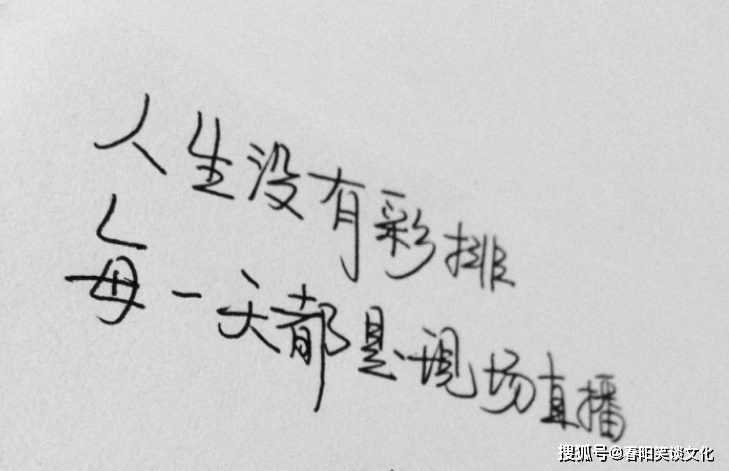 人生没有彩排
每一天都是現场直播
搜狐号@春阳笑谈文化